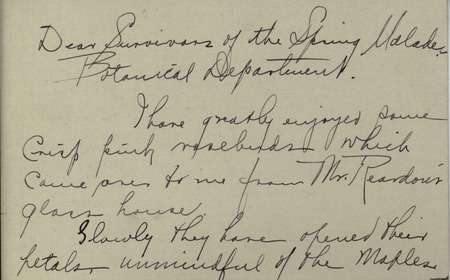 Dear Survivors of the Spring Malade-
Botanical Department.
I have greatly enjoyed some
Crisp pink rosebuds which
Came over to me from Mr. Reardon's
glass house
Slowly they have opened their
petals unmindful of the Maples